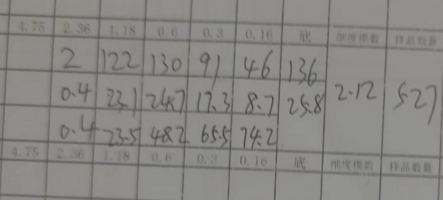 4.75 2.36 1.18 0.6 0.3 0.16 底 细度模数 样品数量
2 122 130 91 46 136
0.4 23.1 24.7 17.3 8.7 25.8 2.12 527
0.4 23.5 48.2 65.5 74.2
4.75 2.36 1.18 0.6 0.3 0.16 底 细度模数 样品数量